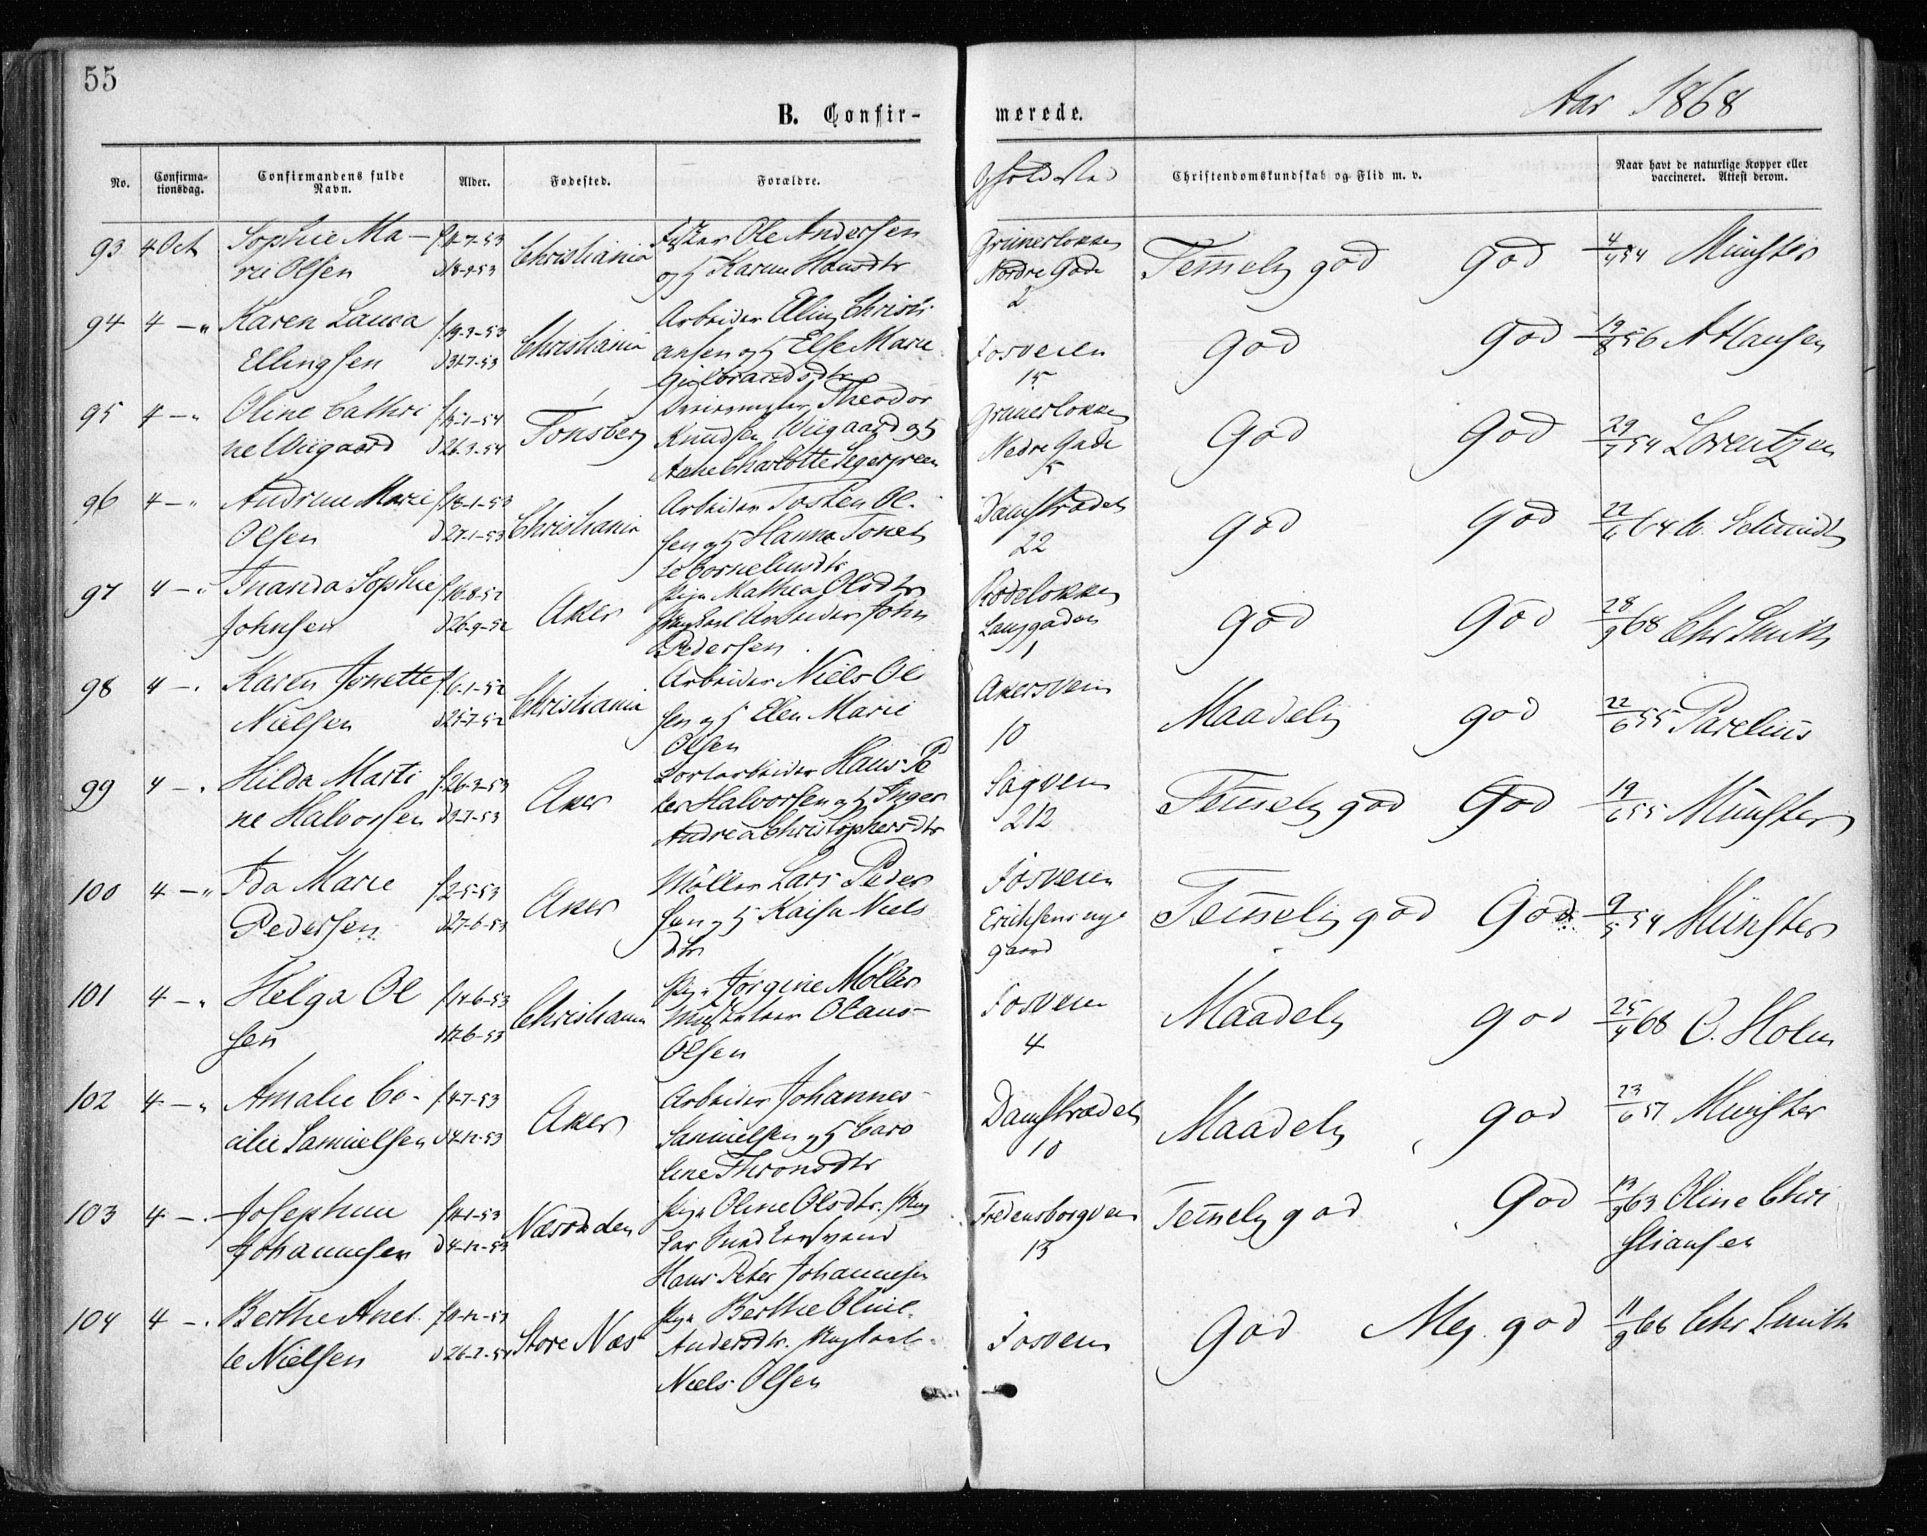 55
Aar 1868
B. Confir-
merede.
No.
Confirma-
tionsdag.
Confirmandens fulde
Navn.
Alder.
Fødested.
Forældre.
Opholdssted
Christendomskundskab og Flid m. v.
Naar havt de naturlige Kopper eller
vaccineret. Attest derom.
93 4 Oct Sophie Ma-
rie Olsen
Christiania
Ole Andersen
og H Karen Hansdtr
Grünerløkken
Nordre Gade
2
Temmelig god God 4/4 54 Münster
94 4 — " Karen Laura
Ellingsen
f 9-9-53
d 31-7-53
Christiania
Arbeider Elling Christi
ansen og H Else Marie
Gulbrandsdtr
Fosveien
15
God God 19/8 56 A Hansen
95 4 — " Oline Cathri
ne Wiigaard
d 26-3-54
Tønsberg
Theodor
Knudsen Wiigaard og H
Anne Charlotte Segergreen
Grünerløkken
Nedre Gade
5
God God 29/7 54 Lorentzen
96 4 — " Andrine Marie
Olsen
f 18-1-53
d 27-1-53
Christiania
Arbeider Tosten Ol-
sen og H Hanna Tonet
te Cornelinsdtr
Damstrædet
22
God God 22/6 64 C. Schmidt
97 4 — " Inanda Sophie
Johnsen
f 10-8-52
d 26-9-52
Aker
Pige Mathea Olsdtr
Ungkarl Arbeider John
Pedersen
Rodeløkken
Langgaden
1
God God 28/9 68 Chr Smith
98 4 — " Karen Jonette
Nielsen
f 6-1-52
d 25-7-52
Christiania
Arbeider Niels Ol
sen og H Elen Marie
Olsen
Akersveien
10
Maadelig God 22/6 55 Parelius
99 4 — " Hilda Marti
ne Halvorsen
f 26-2-53
d 3-7-53
Aker
Hans Pe
ter Halvorsen og H Inger
Andrea Christophersdtr
Sagveien
212
Temmelig god God 19/6 55 Münster
100 4 — " Ida Marie
Pedersen
f 2-5-53
d 27-6-53
Aker
Møller Lars Peder
sen og H Kaisa Niels
dtr
Fosveien
Erichsens nye
gaard
Temmelig god God 9/5 54 Münster
101 4 — " Helga Ol
sen
f 14-6-53
d 17-6-53
Christiania
Pige Jørgine Møller
Olaus
Olsen
Fosveien
4
Maadelig God 25/4 68 O. Holm
102 4 — " Amalie Ce-
cilie Samuelsen
f 4-7-53
d 4-12-53
Aker
Arbeider Johannes
Samuelsen og H Caro
line Thronsdtr
Damstrædet
10
Maadelig God 23/6 57 Münster
103 4 — " Josephine
Johannesen
d 4-12-53
Næsodden
Pige Oline Olsdtr. Ung
kar Snedkersvend
Hans Peter Johannesen
Fredensborgveien
13
Temmelig god God 13/9 63 Oline Chri
stiansen
104 4 — " Berthe Anet
te Nielsen
Store Næs
Pige Berthe Oline
Andersdtr. Ungkarl
Niels Olsen
Fosveien
God Meg. god 11/9 68 Chr Smith